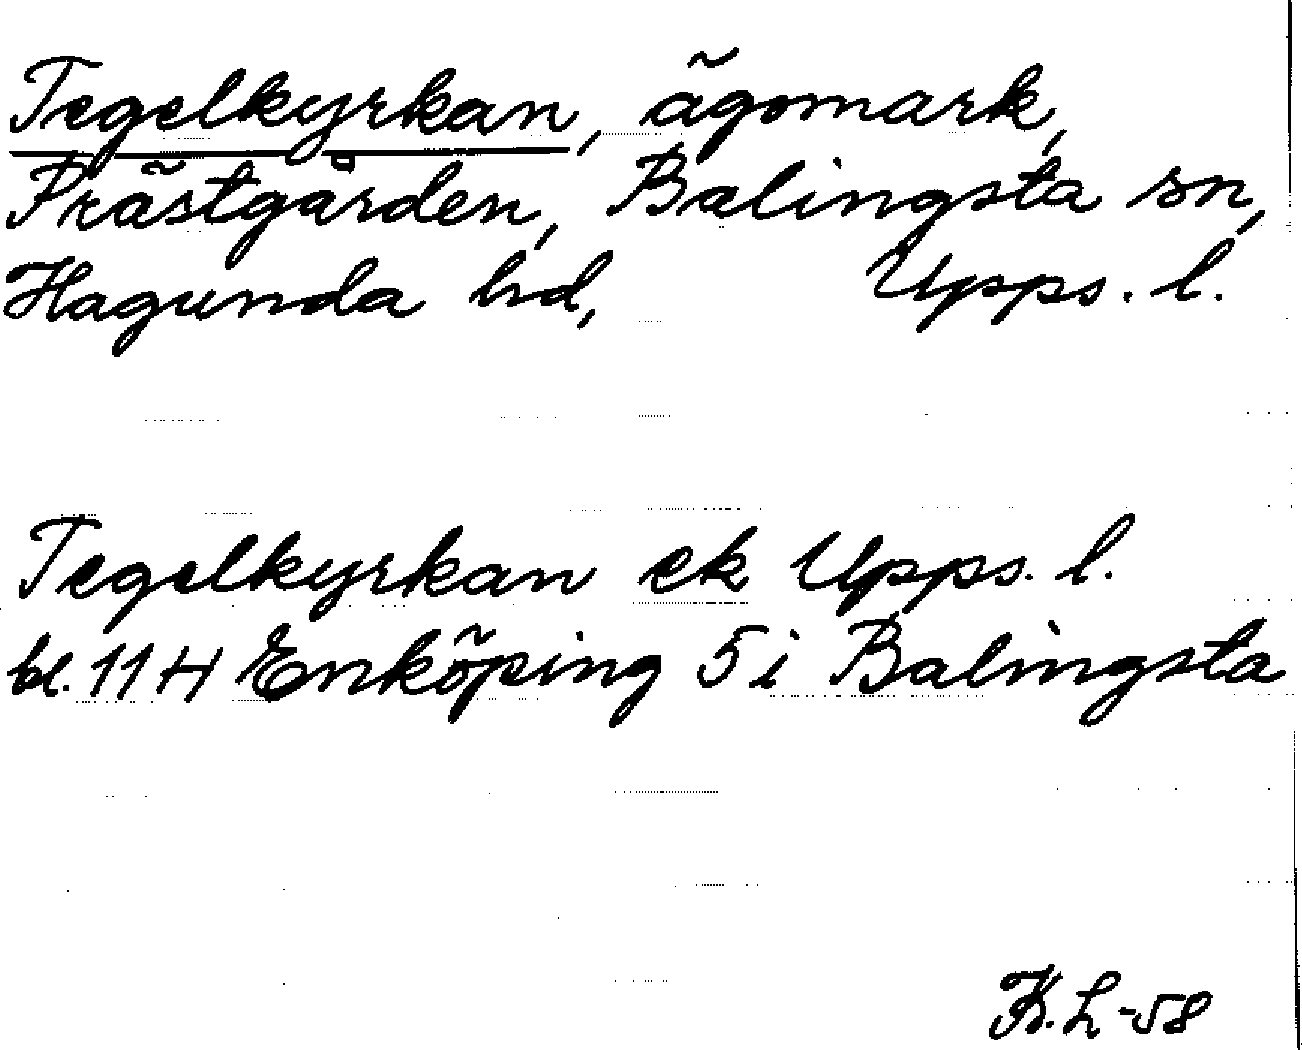 Tegelkyrkan, ägomark,
Prästgården, Balingsta sn,
Hagunda hd, Upps. l.
Tegelkyrkan ek Upps. l.
bl. 11 H Enköping 5 i Balingsta
K. L -58